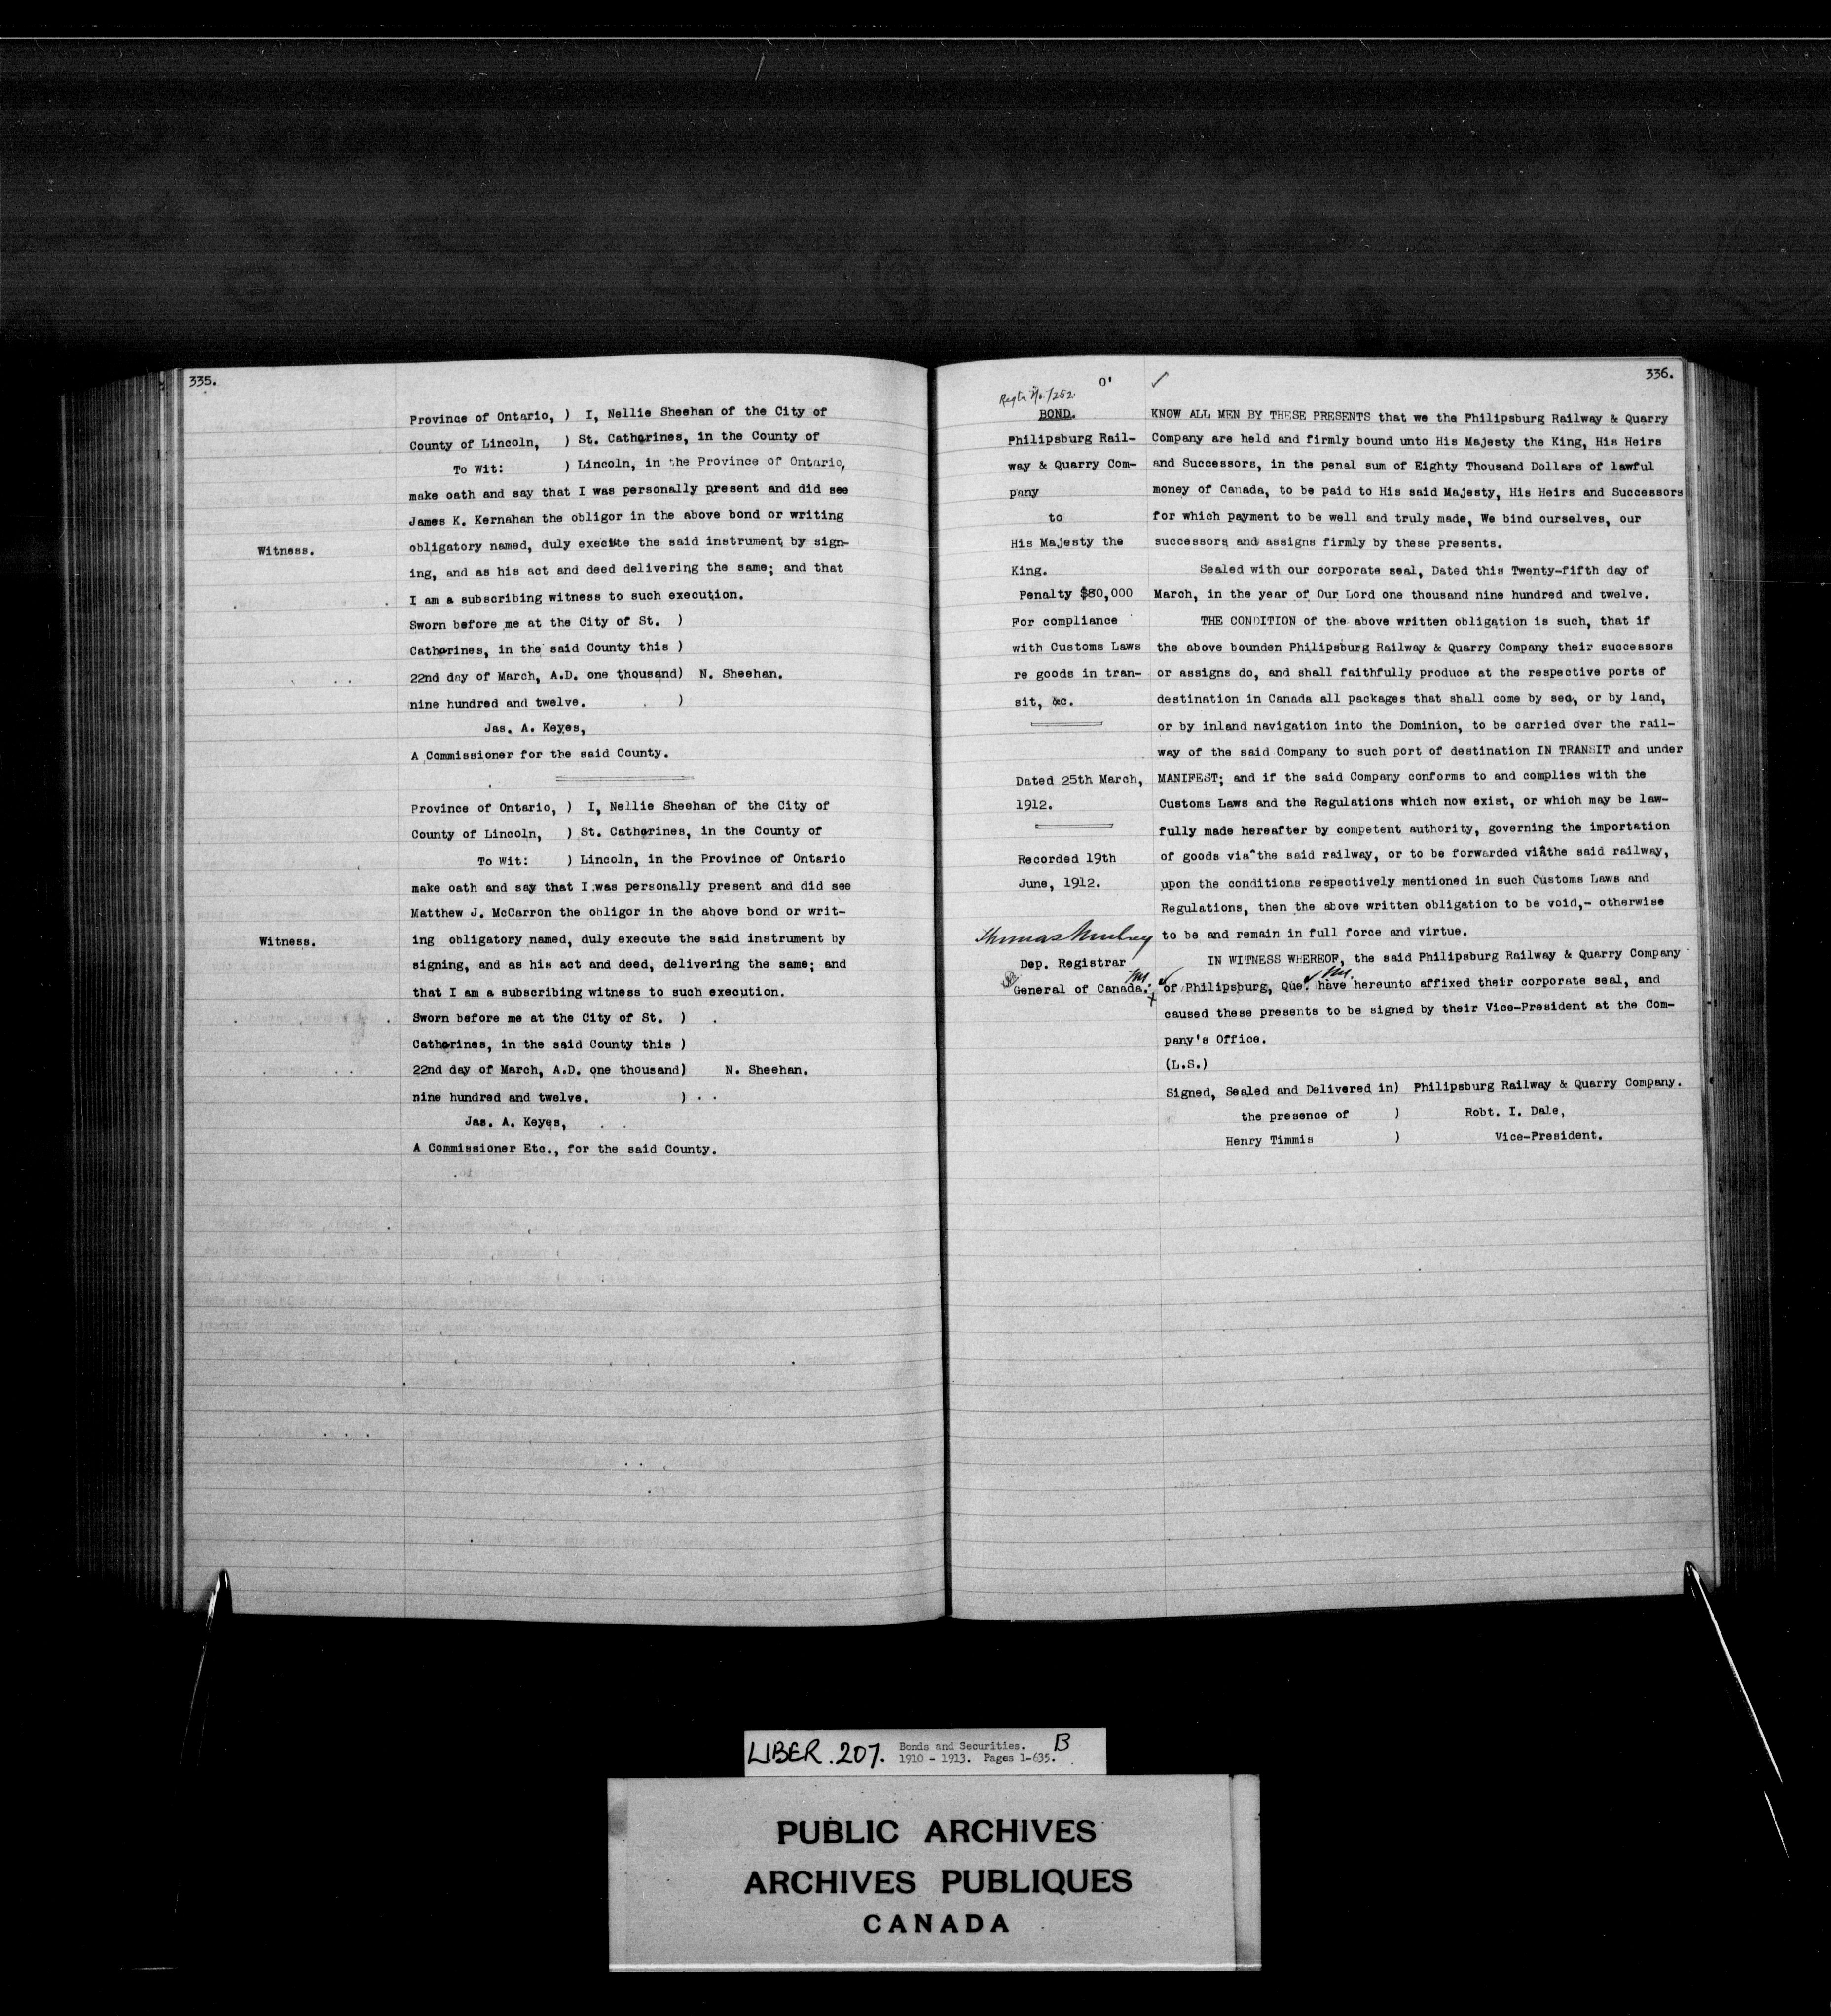 335.
Province of Ontario, ) I, Nellie Sheehan of the City of
County of Lincoln, ) St. Catharines, in the County of
To Wit: ) Lincoln, in the Province of Ontario,
make oath and say that I was personally present and did see
James K. Kernahan the obligor in the above bond or writing
Witness.
obligatory named, duly execute the said instrument by sign-
ing, and as his act and deed delivering the same; and that
I am a subscribing witness to such execution.
Sworn before me at the City of St. )
Catharines, in the said County this )
22nd day of March, A.D. one thousand) N. Sheehan.
nine hundred and twelve. )
Jas. A. Keyes,
A Commissioner for the said County.
Province of Ontario, ) I, Nellie Sheehan of the City of
County of Lincoln, ) St. Catharines, in the County of
To Wit: ) Lincoln, in the Province of Ontario
make oath and say that I was personally present and did see
Matthew J. McCarron the obligor in the above bond or writ-
Witness.
ing obligatory named, duly execute the said instrument by
signing, and as his act and deed, delivering the same; and
that I am a subscribing witness to such execution.
Sworn before me at the City of St. )
Catharines, in the said County this )
22nd day of March, A.D. one thousand) N. Sheehan.
nine hundred and twelve. )
Jas. A. Keyes,
A Commissioner Etc., for the said County.
336.
O'
Regtn No. 7252.
BOND.
Philipsburg Rail-
way & Quarry Com-
pany
to
His Majesty the
King.
Penalty $80,000
For compliance
with Customs Laws
re goods in tran-
sit, &c.
Dated 25th March,
1912.
Recorded 19th
June, 1912.
Thomas Mulvey
Dep. Registrar
General of Canada.
KNOW ALL MEN BY THESE PRESENTS that we the Philipsburg Railway & Quarry
Company are held and firmly bound unto His Majesty the King, His Heirs
and Successors, in the penal sum of Eighty Thousand Dollars of lawful
money of Canada, to be paid to His said Majesty, His Heirs and Successors
for which payment to be well and truly made, We bind ourselves, our
successors and assigns firmly by these presents.
Sealed with our corporate seal, Dated this Twenty-fifth day of
March, in the year of Our Lord one thousand nine hundred and twelve.
THE CONDITION of the above written obligation is such, that if
the above bounden Philipsburg Railway & Quarry Company their successors
or assigns do, and shall faithfully produce at the respective ports of
destination in Canada all packages that shall come by sea, or by land,
or by inland navigation into the Dominion, to be carried over the rail-
way of the said Company to such port of destination IN TRANSIT and under
MANIFEST; and if the said Company conforms to and complies with the
Customs Laws and the Regulations which now exist, or which may be law-
fully made hereafter by competent authority, governing the importation
of goods via the said railway, or to be forwarded via the said railway,
upon the conditions respectively mentioned in such Customs Laws and
Regulations, then the above written obligation to be void,- otherwise
to be and remain in full force and virtue.
IN WITNESS WHEREOF, the said Philipsburg Railway & Quarry Company
of Philipsburg, Que. have hereunto affixed their corporate seal, and
caused these presents to be signed by their Vice-President at the Com-
pany's Office.
(L.S.)
Signed, Sealed and Delivered in) Philipsburg Railway & Quarry Company.
the presence of ) Robt. I. Dale,
Henry Timmis ) Vice-President.
LIBER. 207. Bonds and Securities. B
1910 - 1913. Pages 1-635.
PUBLIC ARCHIVES
ARCHIVES PUBLIQUES
CANADA